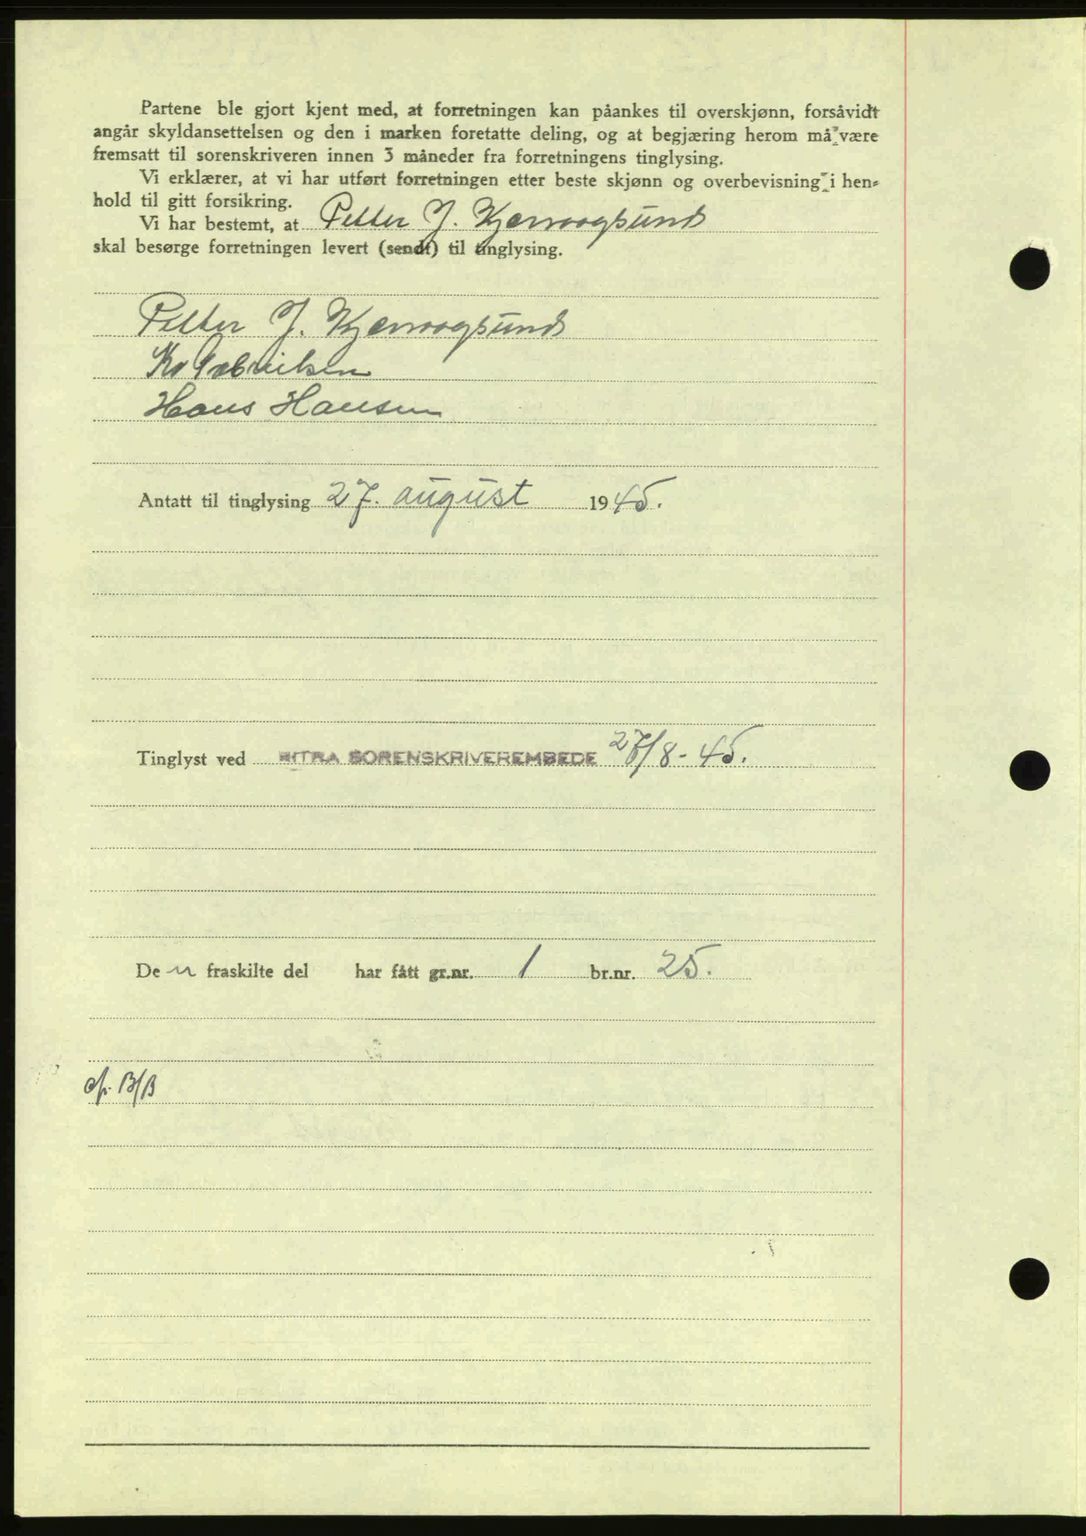 Partene ble gjort kjent med, at forretningen kan påankes til overskjønn, forsåvidt
angår skyldansettelsen og den i marken foretatte deling, og at begjæring herom må være
fremsatt til sorenskriveren innen 3 måneder fra forretningens tinglysing.
Vi erklærer, at vi har utført forretningen etter beste skjønn og overbevisning i hen-
hold til gitt forsikring.
Vi har bestemt, at Petter J. Kjerringsund
skal besørge forretningen levert (sendt) til tinglysing.
Petter J.
Hans Hansen
Antatt til tinglysing 27. august 1945.
Tinglyst ved HITRA SORENSKRIVEREMBEDE 27/8-45.
De n fraskilte del har fått gr.nr. 1 br.nr. 25.
B/B